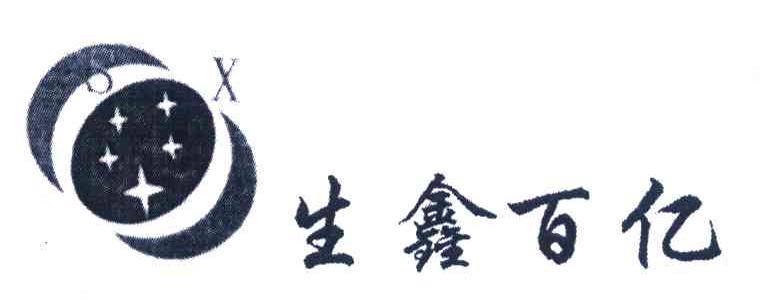 X
生鑫百亿